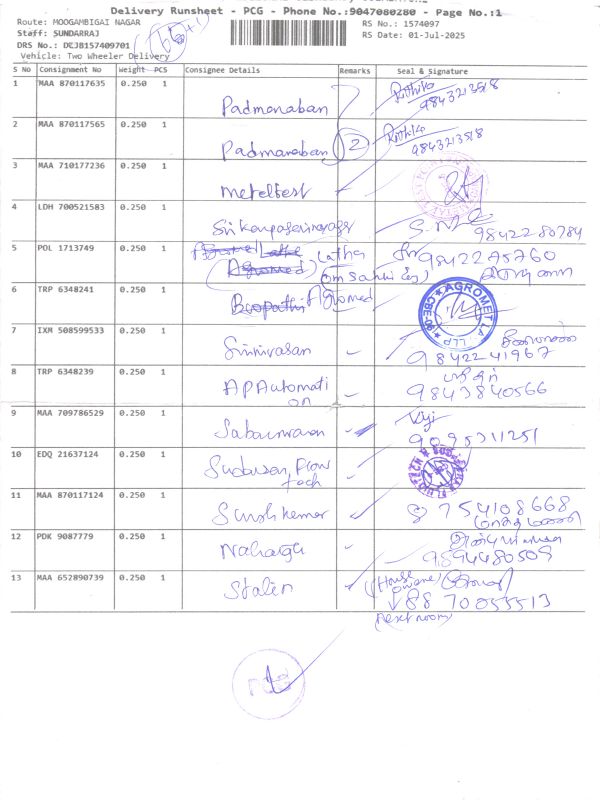 Delivery Runsheet - PCG - Phone No.:9047080280 - Page No.:1
Route: MOOGAMBIGAI NAGAR
RS No.: 1574097
Staff: SUNDARRAJ
RS Date: 01-Jul-2025
DRS No.: DEJB157409701
Vehicle: Two Wheeler Delivery
S No Consignment No Weight PCS Consignee Details Remarks Seal & Signature
1 MAA 870117635 0.250 1 Padmanaban Rithika 9843213518
2 MAA 870117565 0.250 1 Padmanaban 2 Rithika 9843213518
3 MAA 710177236 0.250 1 Meteltest
4 LDH 700521583 0.250 1 9842280784
5 POL 1713749 0.250 1 Latha 9842275760
(Agromed)
6 TRP 6348241 0.250 1 Boopathi Agromed AGROMET LLP CBE-06
7 IXM 508599533 0.250 1 Srinivasan 9842241967
8 TRP 6348239 0.250 1 AP Automati 9843840566
on
9 MAA 709786529 0.250 1 Viji 9095311251
10 EDQ 21637124 0.250 1 Sudarsan Flow
tech
11 MAA 870117124 0.250 1 Suresh kumar 754108668
12 PDK 9087779 0.250 1 9894480509
13 MAA 652890739 0.250 1 Stalin (House owner)
8870055513
(next room)